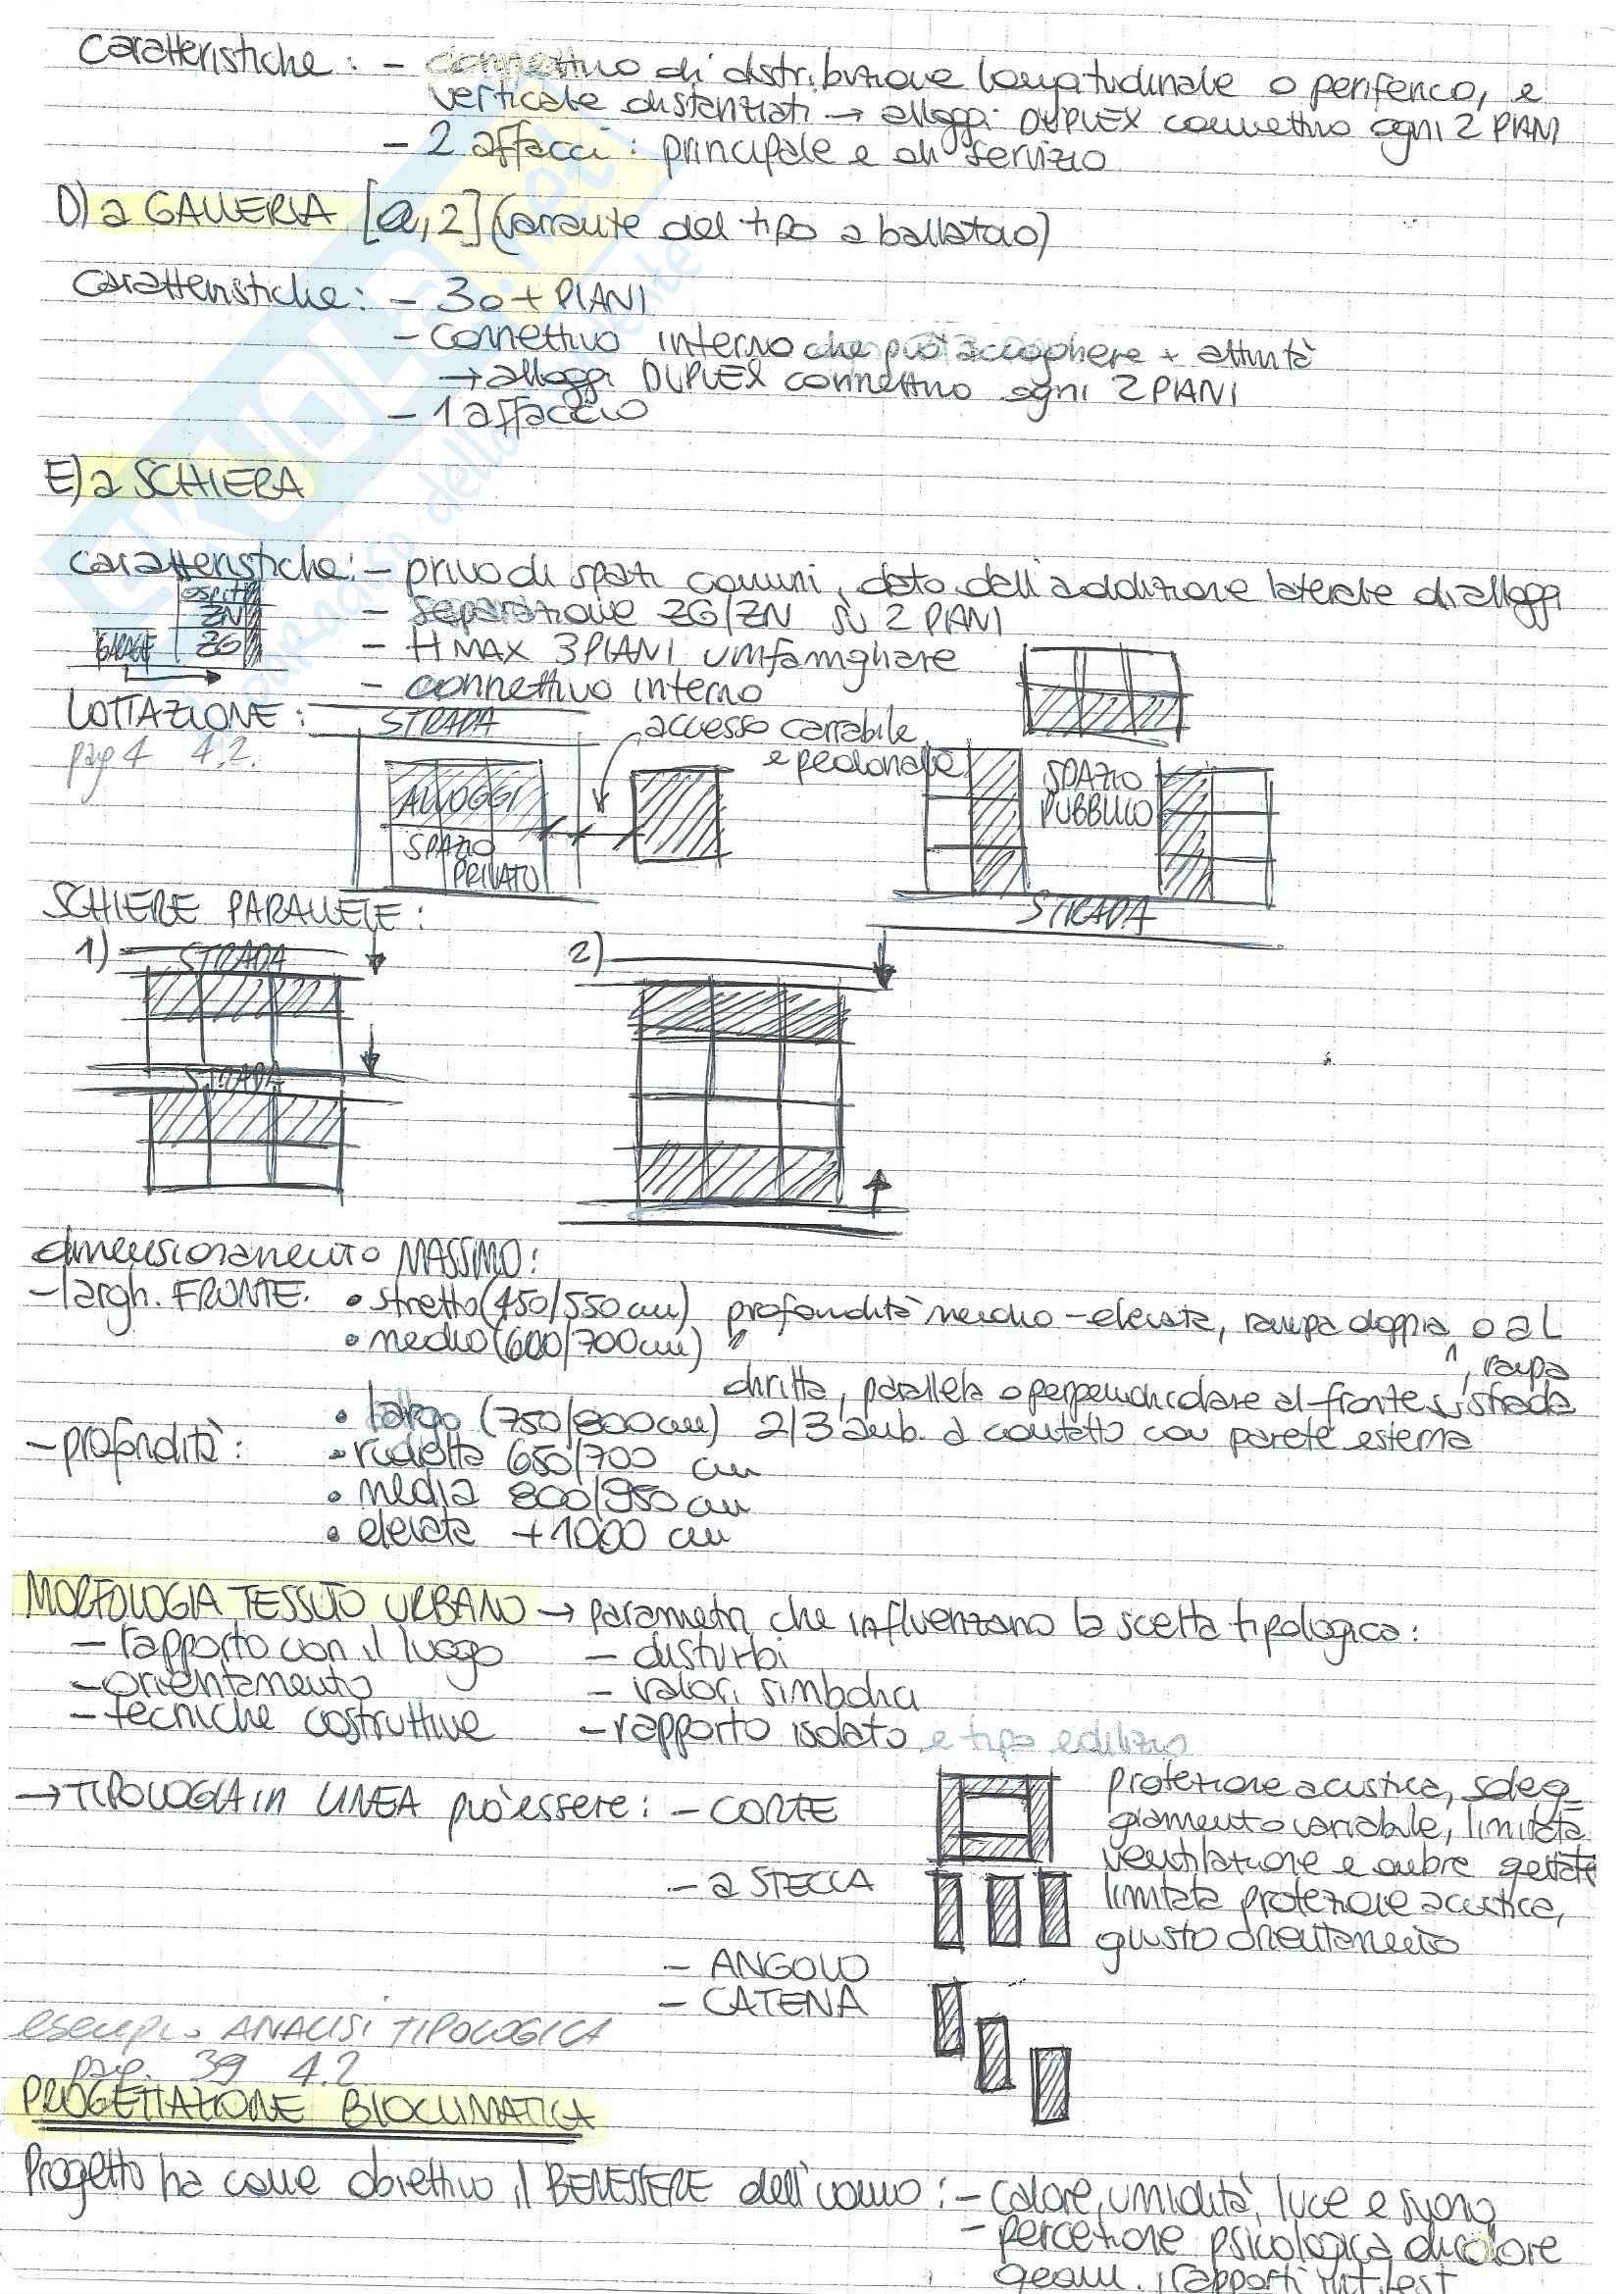 caratteristiche: - connettivo di distribuzione longitudinale o periferico, e
verticale distanziati → alloggi DUPLEX connettivo ogni 2 PIANI
- 2 affacci: principale e di servizio
D) a GALLERIA [a,2] (variante del tipo a ballatoio)
caratteristiche: - 3 o + PIANI
- connettivo interno che può accogliere + attività
→ alloggi DUPLEX connettivo ogni 2 PIANI
- 1 affaccio
E) a SCHIERA
caratteristiche: - privo di spazi comuni, dato dall'addizione laterale di alloggi
ospiti
ZN
GARAGE ZG
- separazione ZG/ZN su 2 PIANI
- H MAX 3 PIANI unifamigliare
- connettivo interno
LOTTAZIONE:
pag 4 4.2.
STRADA
accesso carrabile
e pedonale
ALLOGGI
SPAZIO
PRIVATO
SPAZIO
PUBBLICO
STRADA
SCHIERE PARALLELE:
1) STRADA
STRADA
2)
dimensionamento MASSIMO:
- largh. FRONTE. • stretto (450/550 cm) profondità medio-elevata, rampa doppia o a L
• medio (600/700 cm) "
, rampa
diritta, parallela o perpendicolare al fronte strada
• largo (750/800 cm) 2/3 amb. a contatto con parete esterna
- profondità: • ridotta 650/700 cm
• media 800/950 cm
• elevata +1000 cm
MORFOLOGIA TESSUTO URBANO → parametri che influenzano la scelta tipologica:
- rapporto con il luogo - disturbi
- orientamento - valori simbolici
- tecniche costruttive - rapporto isolato e tipo edilizio
→ TIPOLOGIA in LINEA può essere: - CORTE
protezione acustica, soleg_
giamento variabile, limitata
ventilazione e ombre gettate
- a STECCA
limitata protezione acustica,
giusto orientamento
- ANGOLO
- CATENA
esempio ANALISI TIPOLOGICA
pag. 39 4.2
PROGETTAZIONE BIOCLIMATICA
Progetto ha come obiettivo il BENESSERE dell'uomo: - calore, umidità, luce e suono
- percezione psicologica di colore
geom. rapporti int/est